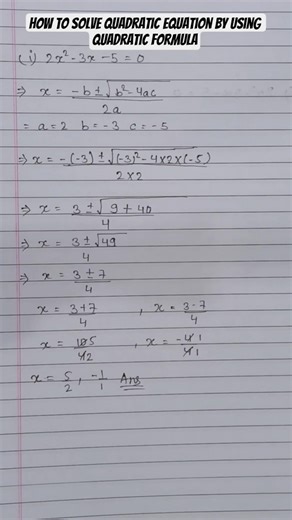 HOW TO SOLVE QUADRATIC EQUATION BY USING
QUADRATIC FORMULA
(i) 2x² - 3x - 5 = 0
⇒ x = -b ± √(b² - 4ac) / 2a
= a = 2 b = -3 c = -5
⇒ x = -(-3) ± √((-3)² - 4×2×(-5)) / 2×2
⇒ x = 3 ± √(9 + 40) / 4
⇒ x = 3 ± √49 / 4
⇒ x = 3 ± 7 / 4
x = 3+7 / 4 , x = 3-7 / 4
x = 10 5 / 4 2 , x = -4 1 / 4 1
x = 5/2 , -1/1 Ans